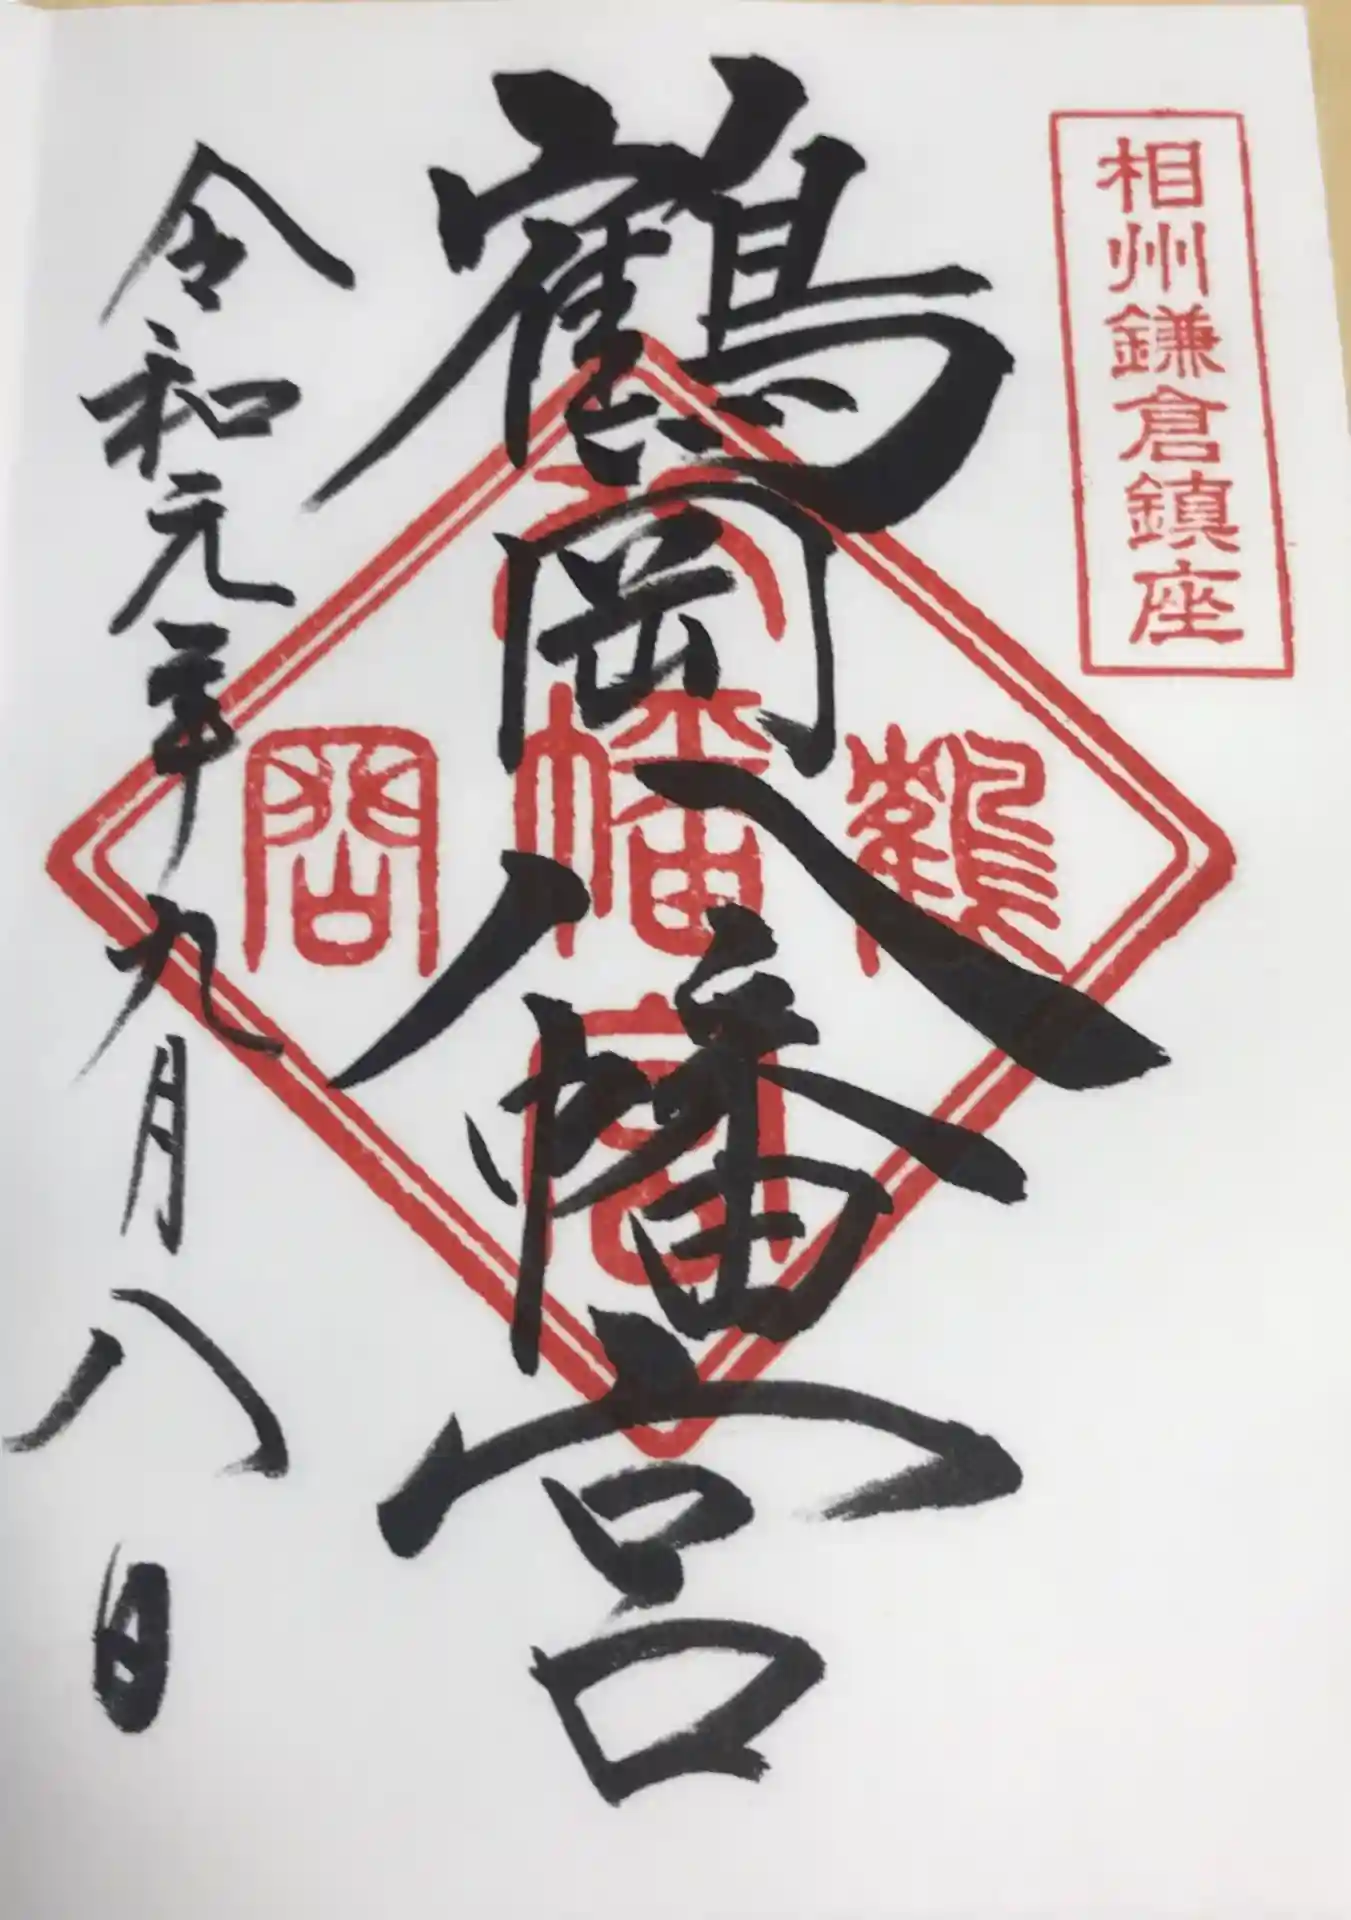 相州鎌倉鎮座
鶴岡八幡宮
鶴岡八幡宮
令和元年九月八日